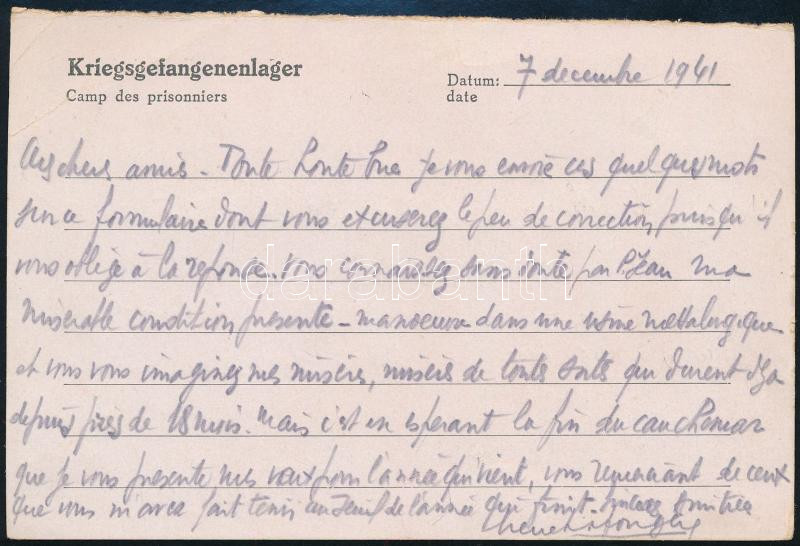 Kriegsgefangenenlager
Camp des prisonniers
Datum: 7 decembre 1941
date
chers amis - Toute honte bue je vous envoie ces quelques mots
sur ce formulaire dont vous excuserez le peu de correction puisqu'il
vous oblige à la réponse. Vous connaissez sans doute par Jean ma
misérable condition présente - manoeuvre dans une usine métallurgique
et vous vous imaginez mes misères, misères de toutes sortes qui durent déjà
depuis près de 18 mois. Mais c'est en espérant la fin du cauchemar
que je vous présente mes voeux pour l'année qui vient, vous remerciant de ceux
que vous m'avez fait tenir au seuil de l'année qui finit. Sincères Amitiés
darabanth